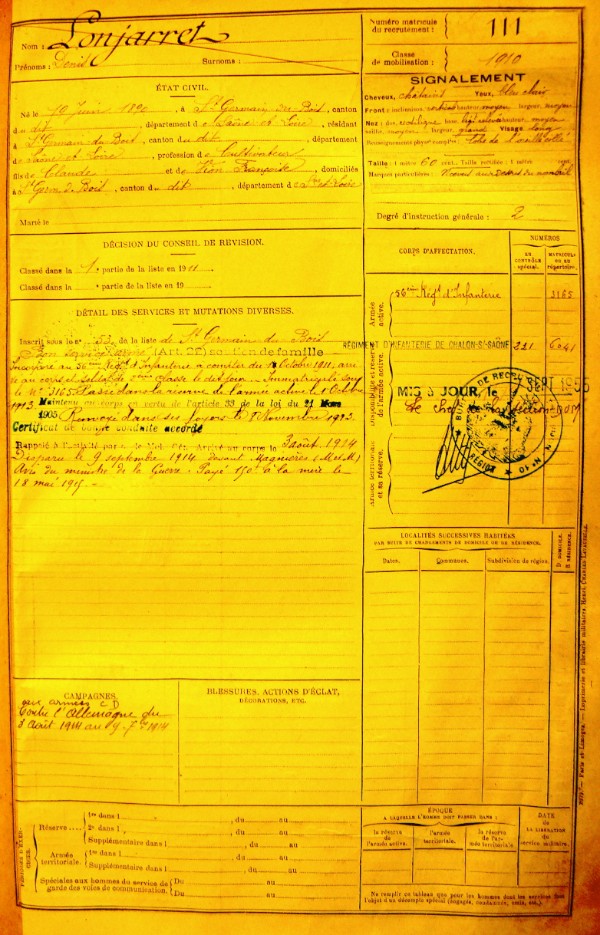 Nom : Lonjarret
Prénoms : Denis C
Surnoms :
Numéro matricule du recrutement : 111
Classe de mobilisation : 1910
ÉTAT CIVIL.
Né le 10 Juin 1890, à St Germain du Bois, canton
du dit, département de Saône et Loire, résidant
à St Germain du Bois, canton du dit, département
de Saône et Loire, profession de Cultivateur
fils de Claude et de Françoise, domiciliés
à St Germ du Bois, canton du dit, département de Sne et Loire
Marié le
SIGNALEMENT
Cheveux, châtains Yeux, bleu clair
Front : inclinaison, hauteur, moyen largeur, moyen
Nez : dos, rectiligne base hauteur, moyen
saillie, moyen largeur, grand Visage long
Renseignements physion. complém. :
Taille : 1 mètre 60 cent. Taille rectifiée : 1 mètre cent.
Marques particulières :
Degré d'instruction générale : 2
DÉCISION DU CONSEIL DE RÉVISION.
Classé dans la 1e partie de la liste en 1911
Classé dans la partie de la liste en 19
CORPS D'AFFECTATION.
NUMÉROS
AU CONTRÔLE spécial.
MATRICULE OU AU RÉPERTOIRE.
Armée active.
56me Régt d'Infanterie 3165
Disponibilité et réserve de l'armée active.
RÉGIMENT D'INFANTERIE DE CHALON-S/-SAÔNE 221 6041
Armée territoriale et sa réserve.
MIS À JOUR, le SEPT 1955
BUREAU DE RECRUT
RÉGION
DIJON
DÉTAIL DES SERVICES ET MUTATIONS DIVERSES.
Inscrit sous le n° 53 de la liste de St Germain du Bois
Bon service armé (Art. 22) soutien de famille
Incorporé au 56me Régt d'Infanterie à compter du Octobre 1911, arrivé
au corps et soldat de 2ème classe le dit jour. Immatriculé sous
le N° 3165. Passé dans la réserve de l'armée active le 1 Octobre
1913 Maintenu au corps en vertu de l'article 33 de la loi du 21 Mars
1905 Renvoyé dans ses foyers le 8 Novembre 1913.
Certificat de bonne conduite accordé
Rappelé à l'activité Arrivé au corps le 3 août 1914
Disparu le 9 septembre 1914 devant Magnières (M et M)
Avis du ministre de la Guerre. Payé 150f à la mère le
18 mai 1915.
LOCALITÉS SUCCESSIVES HABITÉES
PAR SUITE DE CHANGEMENTS DE DOMICILE OU DE RÉSIDENCE.
Dates.
Communes.
Subdivision de région.
D DOMICILE. R RÉSIDENCE.
CAMPAGNES.
aux armées CD
Contre l'Allemagne du
3 Août 1914 au 9 7bre 1914
BLESSURES, ACTIONS D'ÉCLAT,
DÉCORATIONS, ETC.
PÉRIODES D'EXERCICES.
Réserve
1re dans l , du au
2e dans l , du au
Supplémentaire dans l , du au
Armée territoriale.
1re dans l , du au
Supplémentaire dans l , du au
Spéciales aux hommes du service de garde des voies de communication.
Du au
Du au
ÉPOQUE
À LAQUELLE L'HOMME DOIT PASSER DANS :
la réserve de l'armée active.
l'armée territoriale.
la réserve de l'armée territoriale.
DATE de LA LIBÉRATION du service militaire.
Ne remplir ce tableau que pour les hommes dont les services font
l'objet d'un décompte spécial (engagés, condamnés, omis, etc.).
Paris et Limoges. — Imprimerie et librairie militaires Henri Charles-Lavauzelle.